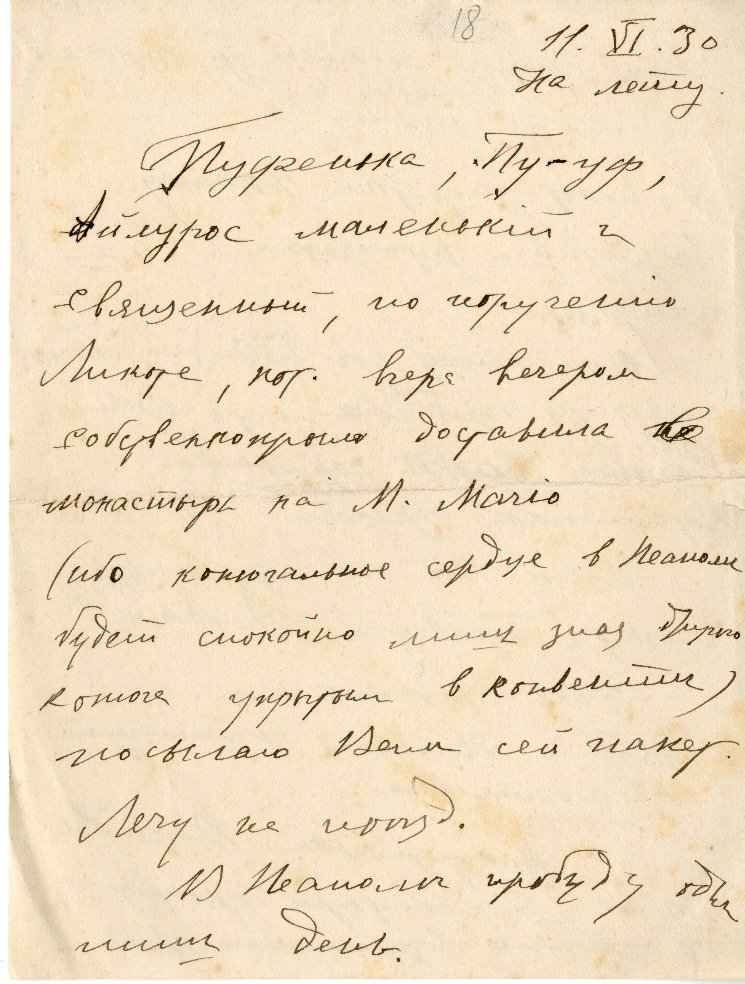 18
11. VI. 30
На лету.
Пуфенька, Пу-уф,
Айлурос маленькій и
священный, по порученію
Ликоте, кот. вчера вечером
собственнокрыло доставила
монастырь на M. Mario
(ибо конюгальное сердце в Неаполе
будет спокойно лишь зная другого
конюга укрытым в конвенти)
посылаю Вам сей пакет.
Лечу на поезд.
В Неаполе пробуду один
лишь день.